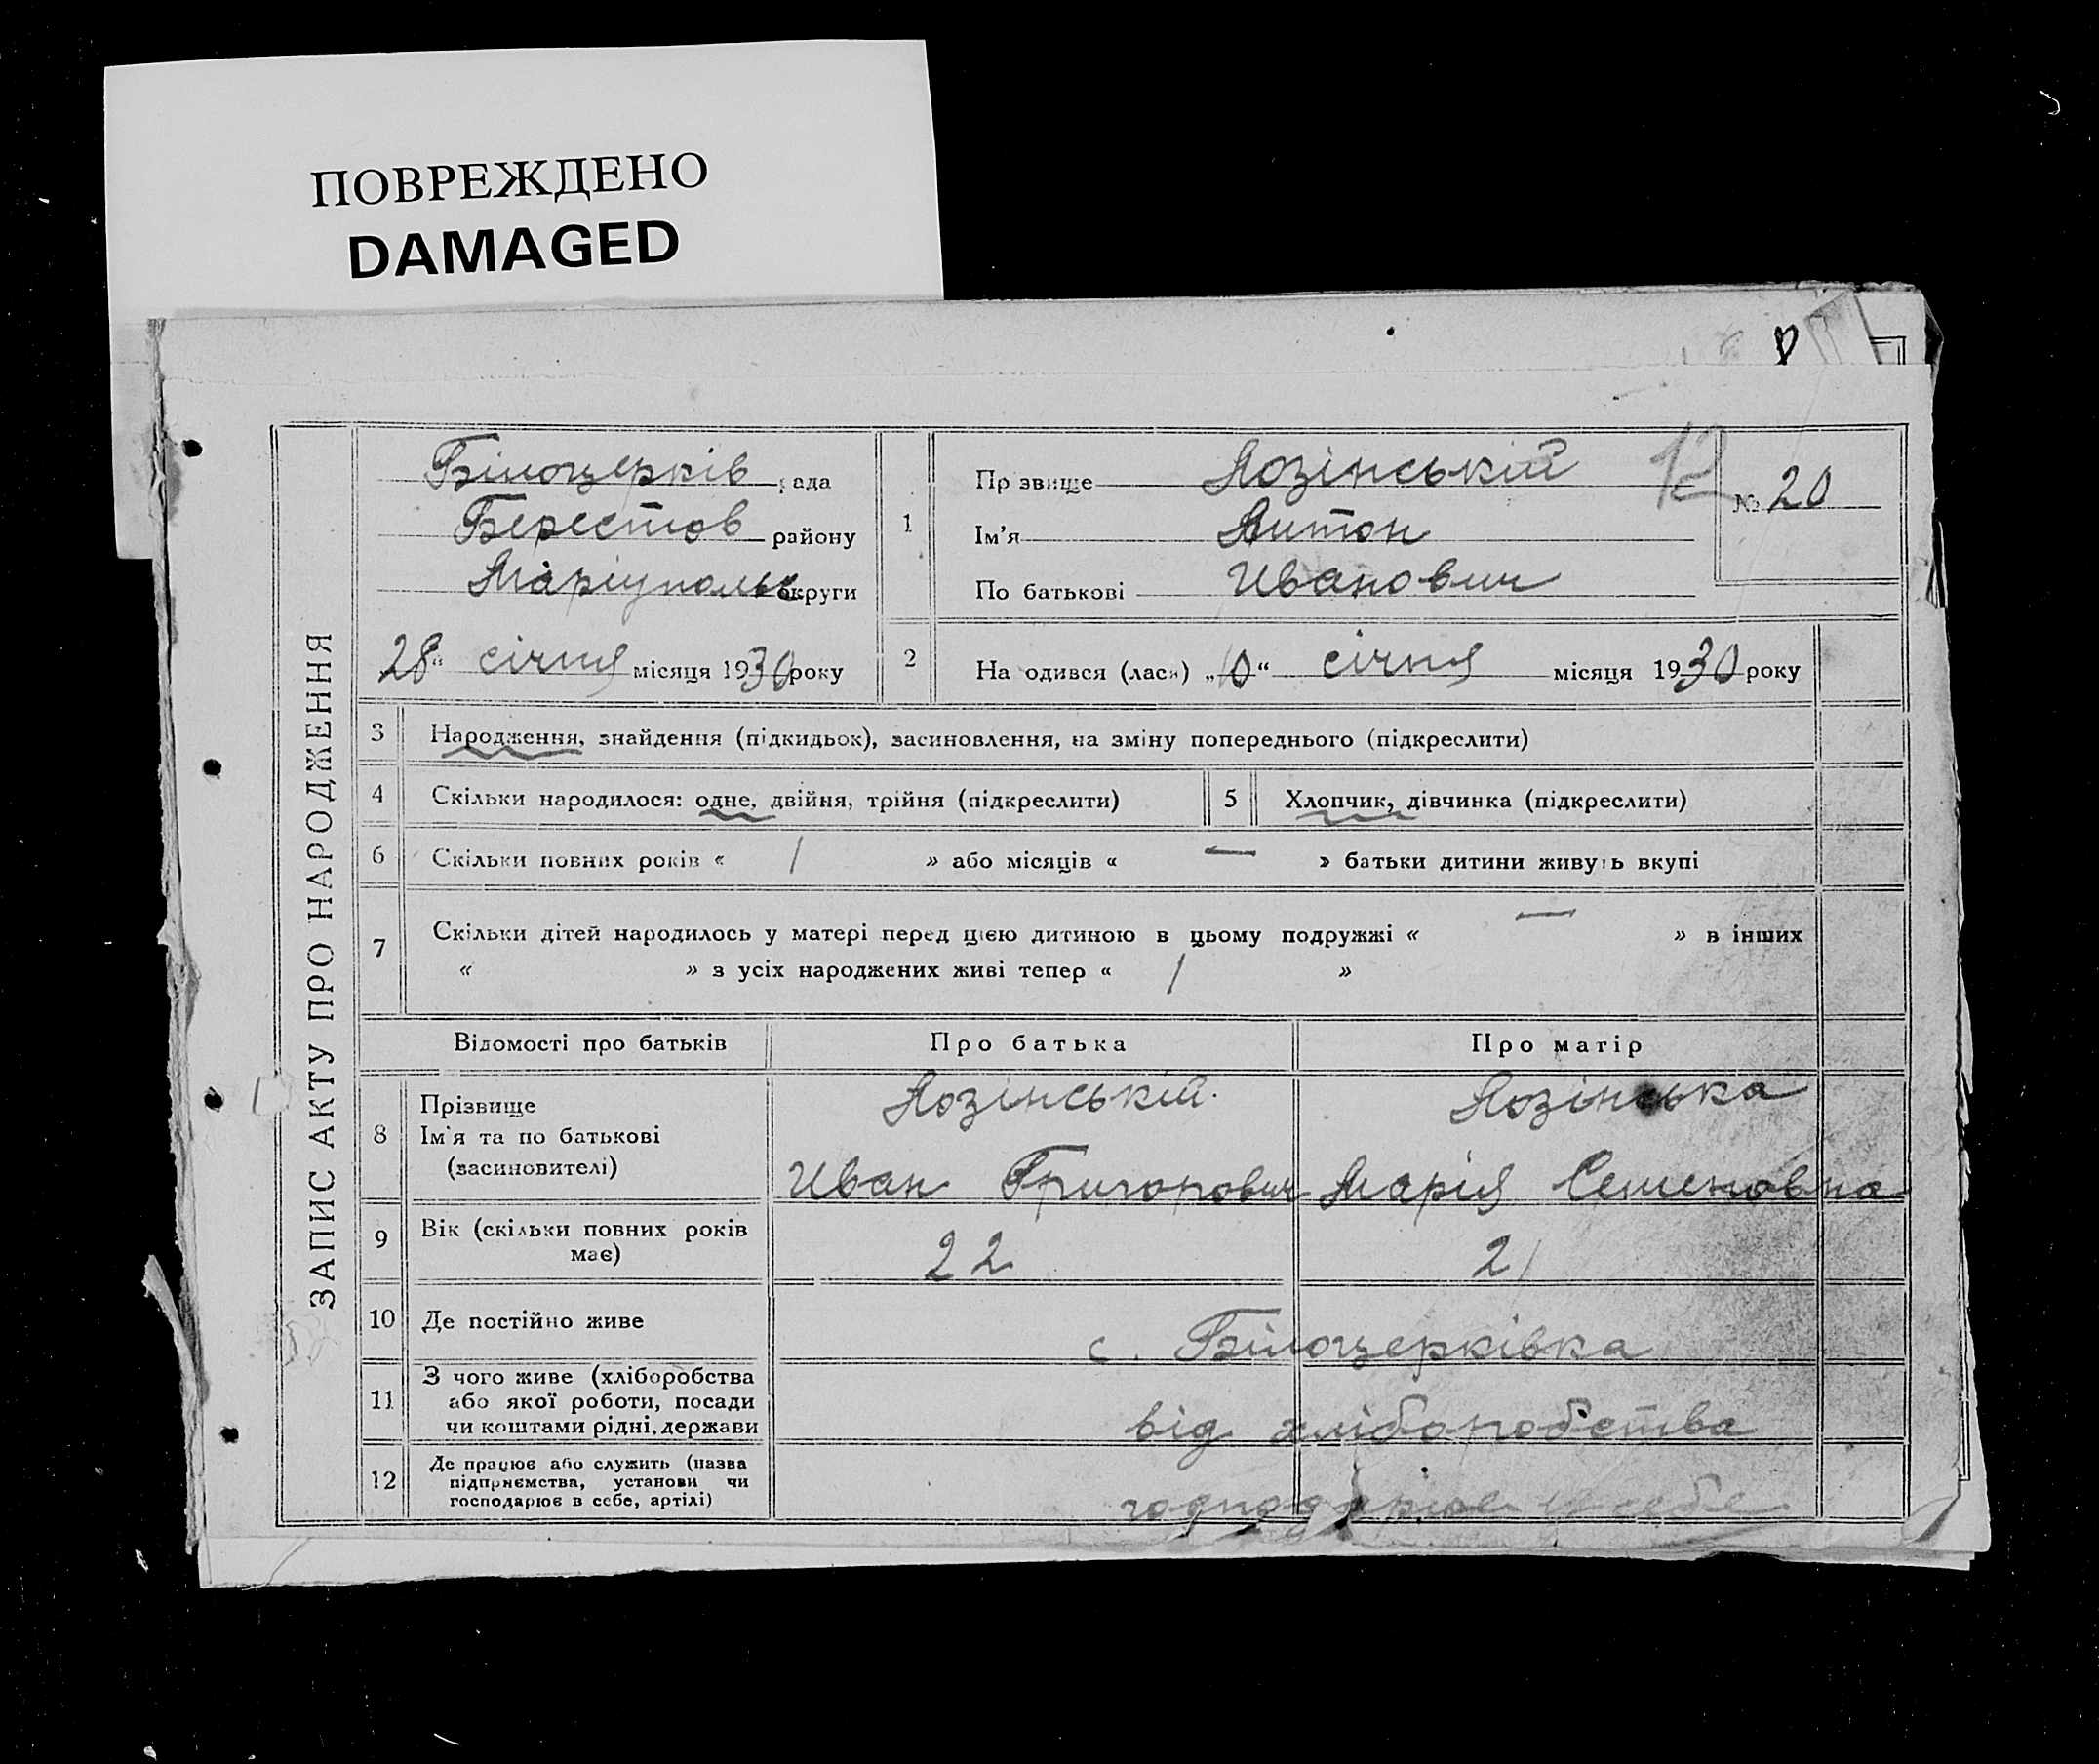 ПОВРЕЖДЕНО
DAMAGED
ЗАПИС АКТУ ПРО НАРОДЖЕННЯ
Білоцерків рада
Берестов району
Маріупольс округи
28 " січня місяця 1930 року
1
Прізвище Лозінській
Ім'я Антон
По батькові Иванович
12
№ 20
2 Народився (лася) „10" січня місяця 1930 року
3 Народження, знайдення (підкидьок), засиновлення, на зміну попереднього (підкреслити)
4 Скільки народилося: одне, двійня, трійня (підкреслити) 5 Хлопчик, дівчинка (підкреслити)
6 Скільки повних років « 1 » або місяців « — » батьки дитини живуть вкупі
7 Скільки дітей народилось у матері перед цією дитиною в цьому подружжі « — » в інших
« » з усіх народжених живі тепер « 1 »
Відомості про батьків Про батька Про матір
8 Прізвище Ім'я та по батькові (засиновителі)
Лозінській. Лозінська
Иван Григорович Марія Семеновна
9 Вік (скільки повних років має) 22 21
10 Де постійно живе с. Білоцерківка
11 З чого живе (хліборобства або якої роботи, посади чи коштами рідні, держави від хліборобства
12 Де працює або служить (назва підприємства, установи чи господарює в себе, артілі) у себе